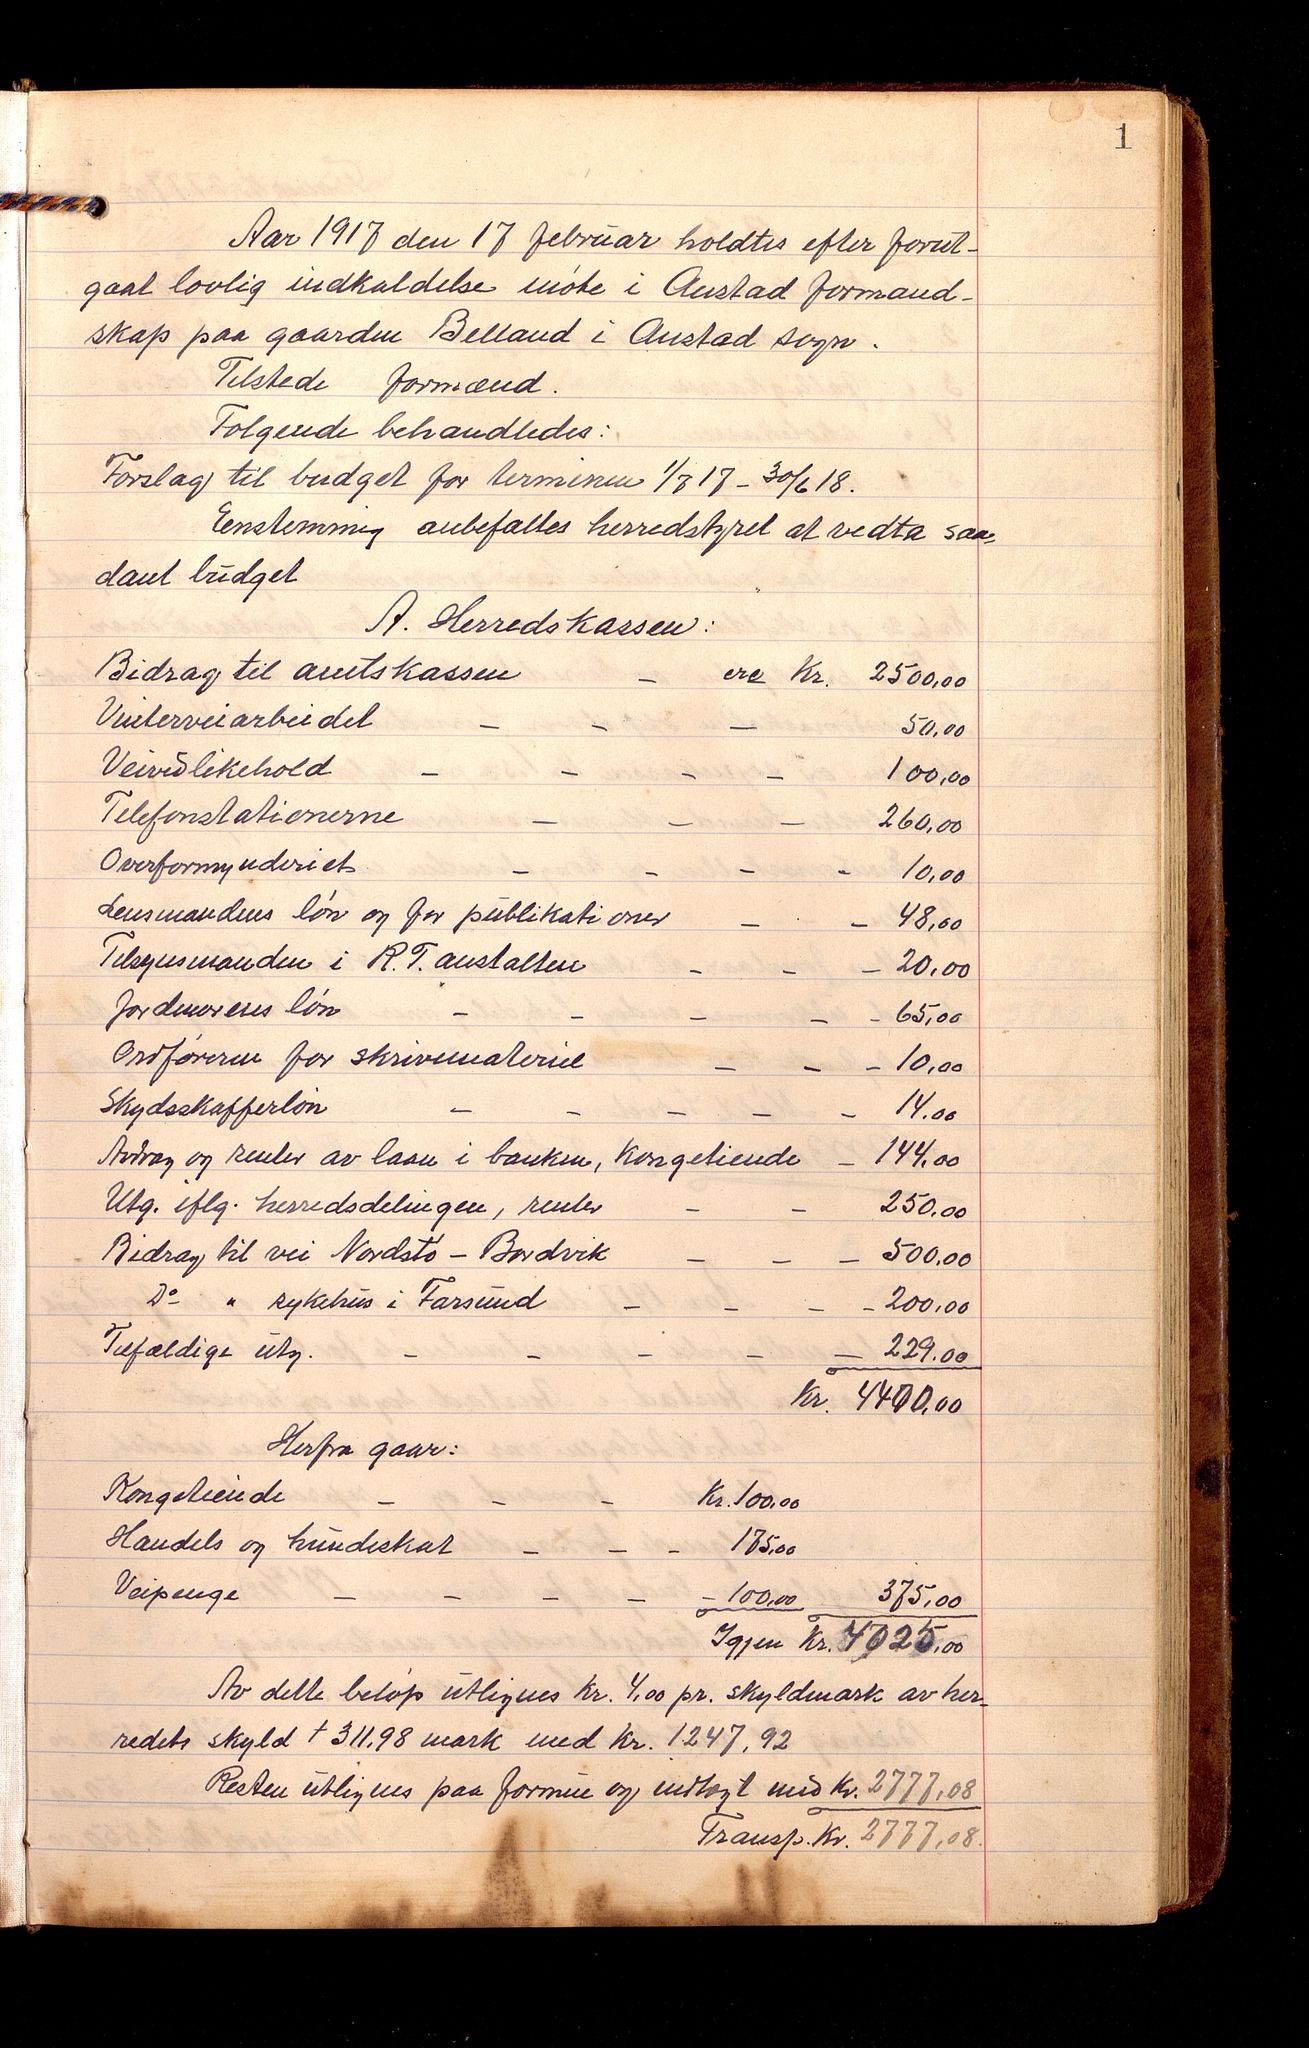 1
Aar 1917 den 17 februar holdtes efter forut-
gaat lovlig indkaldelse møte i Austad formand-
skap paa gaarden Belland i Austad sogn.
Tilstede formænd.
Følgende behandledes:
Forslag til budget for terminen 1/7 17 - 30/6 18.
Eenstemmig anbefaltes herredstyret at vedta saa-
dant budget
A. Herredskassen:
Bidrag til amtskassen - crc Kr. 2500,00
Vinterveiarbeidet - - - 50,00
Veivedlikehold - - - - 100,00
Telefonstationerne - - - 260,00
Overformynderiet - - - - 10,00
Lensmandens løn og for publikationer - - 48,00
Tilsynsmanden i R.T. anstalten - - - 20,00
Jordmorens løn - - - - - 65,00
Ordføreren for skrivemateriel - - - 10,00
Skydsskafferløn - - - - - 14.00
Avdrag og renter av laan i banken, Kongetiende - 144,00
Utg. iflg. herredsdelingen, renter - - 250.00
Bidrag til vei Nordstø - Bordvik - - - 500,00
Do " sykehus i Farsund - - - - 200,00
Tilfældige utg. - - - - - 229.00
Kr. 4400,00
Herfra gaar:
Kongetiende - - - Kr. 100,00
Handels og hundeskat - - - 175,00
Veipenge - - - - - 100,00 375,00
Igjen Kr. 4025,00
Av dette beløp utlignes Kr. 4,00 pr. skyldmark av her-
redets skyld + 311,98 mark med Kr. 1247,92
Resten utlignes paa formue og indtægt med Kr. 2777,08
Transp. Kr. 2777,08.